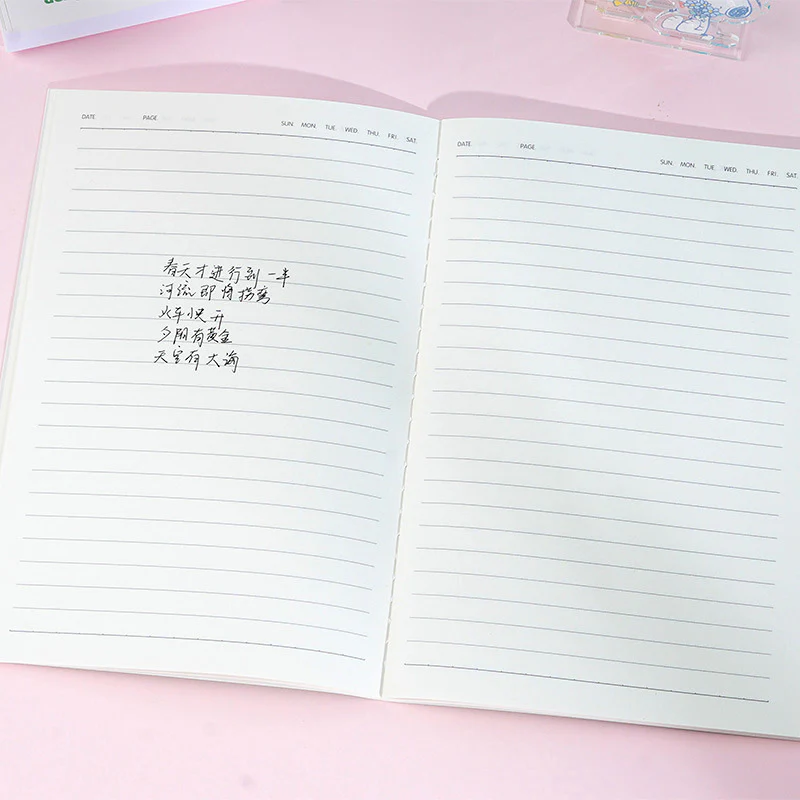 DATE PAGE SUN. MON. TUE. WED. THU. FRI. SAT.
春天才进行到一半
河流即将拐弯
火车快开
夕阴有黄金
天空有大海
DATE PAGE SUN. MON. TUE. WED. THU. FRI. SAT.